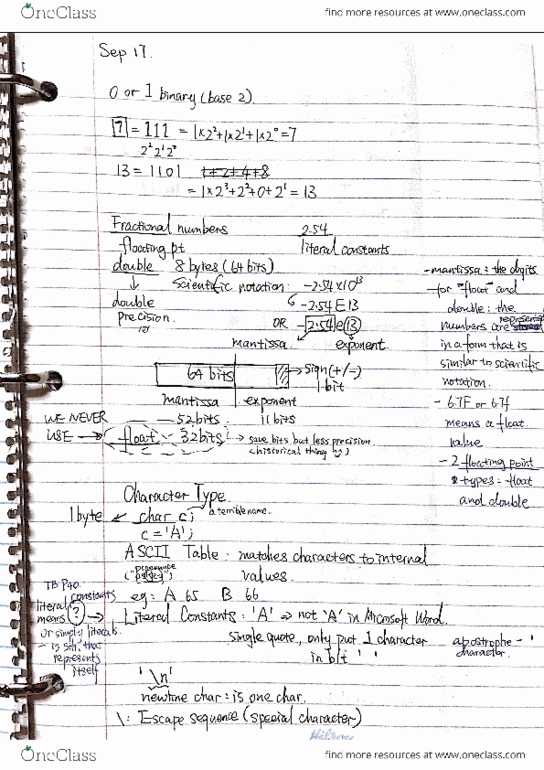 OneClass
find more resources at www.oneclass.com
Sep 17.
0 or 1 binary (base 2).
7 = 111 = 1x2² + 1x2¹ + 1x2⁰ = 7
2² 2¹ 2⁰
13 = 1101 1+2+4+8
= 1x2³ + 2² + 0 + 2¹ = 13
Fractional numbers 2.54
floating pt literal constants
double 8 bytes (64 bits)
↓ Scientific notation: -2.54x10¹³
double -2.54E13
precision. OR -2.54e13
mantissa exponent
64 bits → Sign (+/-)
1 bit
mantissa exponent
52 bits 11 bits
WE NEVER
USE → float - 32 bits → save bits but less precision
(historical thing)
- mantissa: the digits
for "float" and
double: the
numbers are represented
in a form that is
similar to scientific
notation.
- 67F or 67f
means a float
value
- 2 floating point
types: float
and double
Character Type.
1 byte ← char c; a terrible name.
c = 'A';
ASCII Table: matches characters to internal
values.
eg: A 65 B 66
TB P40
constants
literal means ?
or simply literals.
- is sth. that
represents
itself
→ Literal Constants: 'A' => not 'A' in Microsoft Word.
single quote, only put 1 character
in b/t ' '
apostrophe - '
character.
'\n'
newline char: is one char.
\: Escape sequence (special character)
OneClass
find more resources at www.oneclass.com